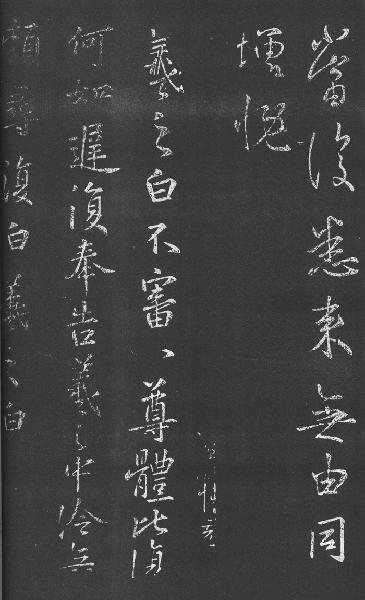 當復悉來無由同
增慨
羲之白不審尊體比復
何如遲復奉告羲之中冷無
賴尋復白羲之白